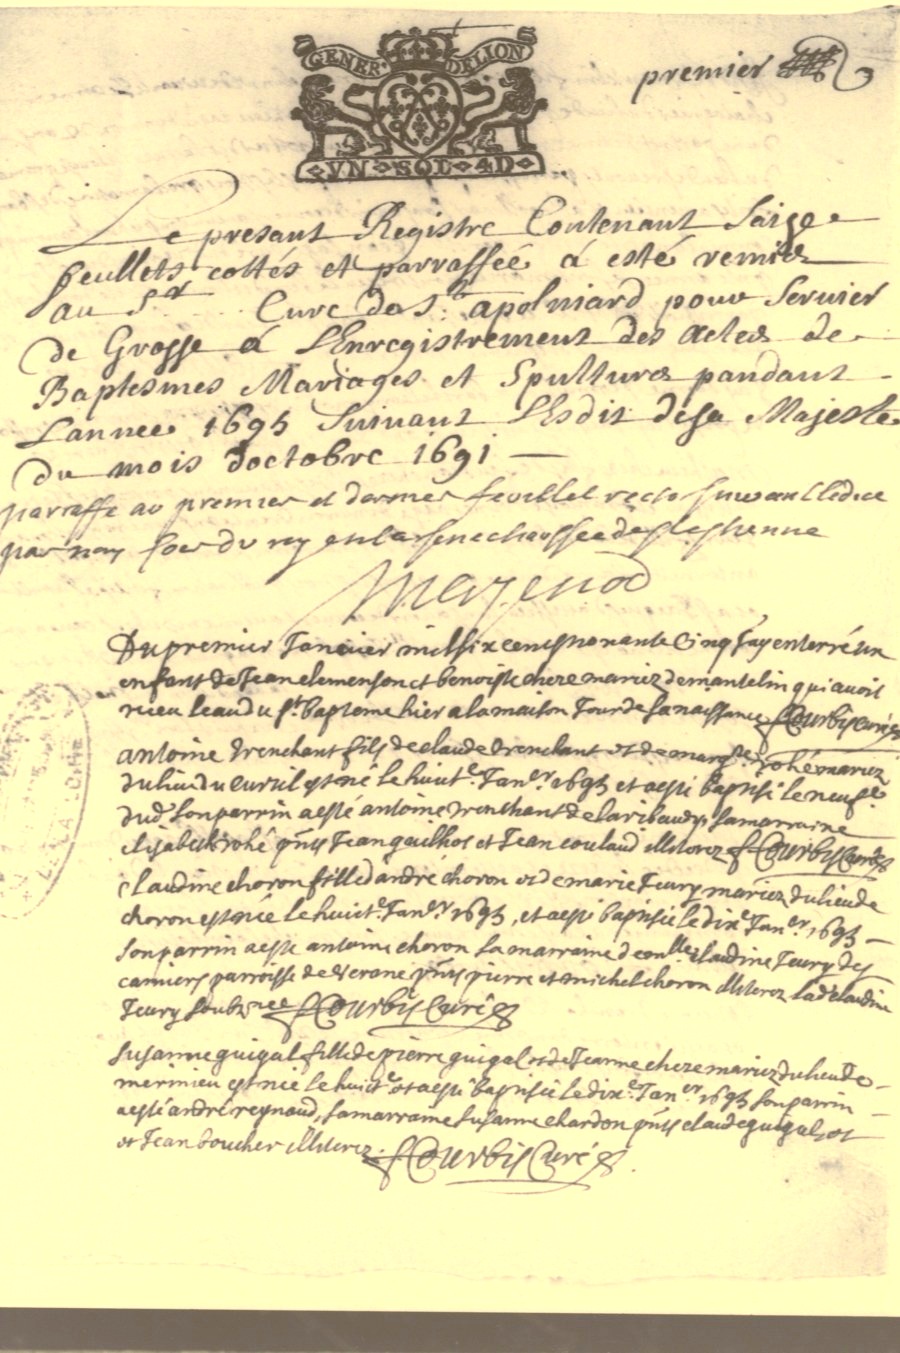 GENER. DE LION
VN SOL 4D
premier
Le presant Registre Contenant Saize
feullets cottés et parrassée á esté remis
au Sr Cure de St. apolniard pour Servier
de Grosse á L'Enregistrement des Actes de
Baptesmes Mariages et Spultures pandant
Lannee 1695 Suivant L'Esdit de sa Majeste
du mois doctobre 1691
parraffe au premier et dernier feuillet recto suivant ledice
par noy du roy en la senechaussee de St estienne
Mazenod
Du premier Janvier mil six cents nonante Cinq J'ay enterré un
enfant de Jean clemenson et benoiste chere mariez de mantelin qui avoit
receu leau du st. bapteme hier a la maison Jour de sa naissance Courbis curé
antoine trenchant fils de claude trenchant et de margte. rohé mariez
du lieu du Curtil est né le huite. Janer. 1695 et a esté baptisé le neufe
dud. Son parrin a esté antoine trenchant de la ribaudy sa marraine
elisabeth rohé pnts Jean gaulhos et Jean coulaud illiterez Courbis Curé
claudine choron fille d'andré choron et de marie Jeury mariez du lieu de
choron est née le huicte. Janer. 1695, et a esté baptisée le dixe. Janer. 1695
son parrin a este antoine choron sa marraine d'eonlle. claudine Jeury des
camiers parroisse de Verane pnts pierre et michel choron illiterez la de. claudine
Jeury soubznee Courbis Curé
Susanne guigal fille de pierre guigal et de Jeanne chere mariez du lieu de
merinieu est née le huicte. et a esté baptisée le dixe. Janer. 1695 son parrin
a esté andré reynaud, sa marraine susanne chardon pnts claude guigal, et
et Jean boucher illiterez. Courbis Curé